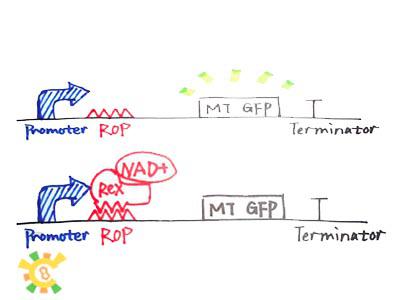 MT GFP
Promoter ROP Terminator
NAD+
Rex
MT GFP
Promoter ROP Terminator
8